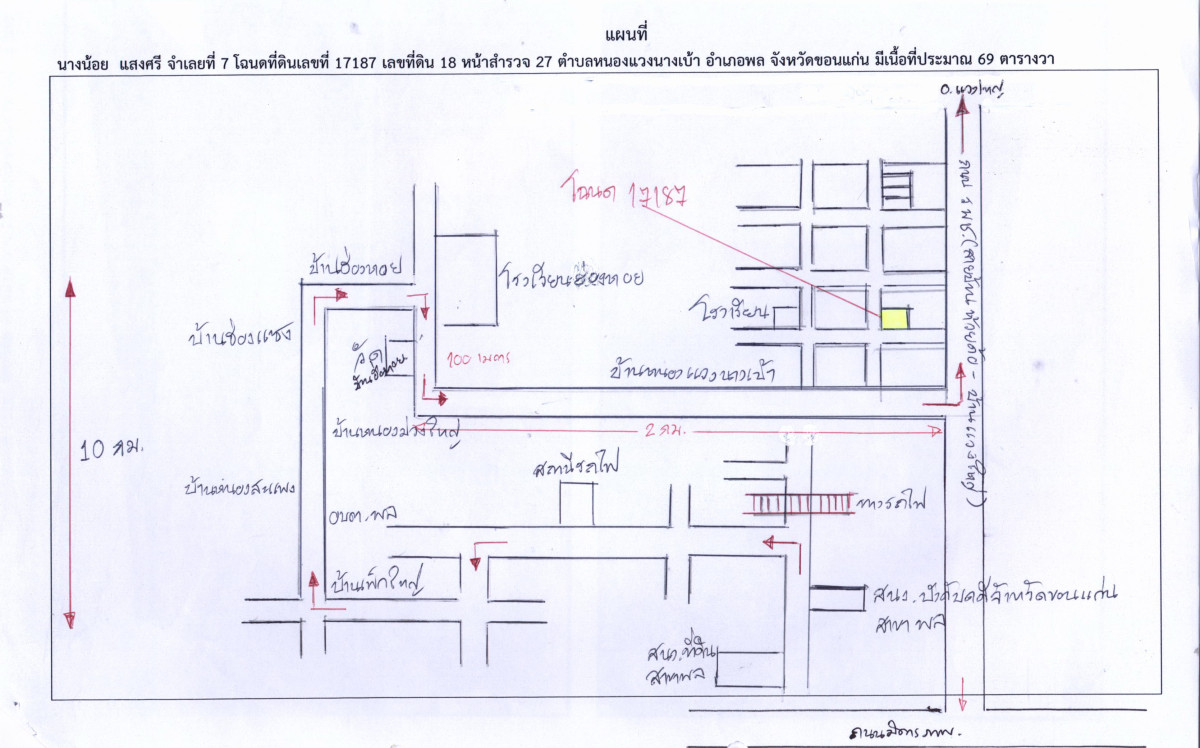 แผนที่
นางน้อย แสงศรี จำเลยที่ 7 โฉนดที่ดินเลขที่ 17187 เลขที่ดิน 18 หน้าสำรวจ 27 ตำบลหนองแวงนางเบ้า อำเภอพล จังหวัดขอนแก่น มีเนื้อที่ประมาณ 69 ตารางวา
อ. แวงใหญ่
โฉนด 17187
บ้านช่องหอย
โรงเรียนช่องหอย
โรงเรียน
บ้านช่องแซง
วัด
100 เมตร
บ้านหนองแวงนางเบ้า
บ้านหนองม่วงใหญ่
2 กม.
10 กม.
สถานีรถไฟ
อบต. พล
ทางรถไฟ
บ้านเพ็กใหญ่
สนง. บังคับคดีจังหวัดขอนแก่น
สาขา พล
สนง. ที่ดิน
สาขาพล
ถนนมิตรภาพ